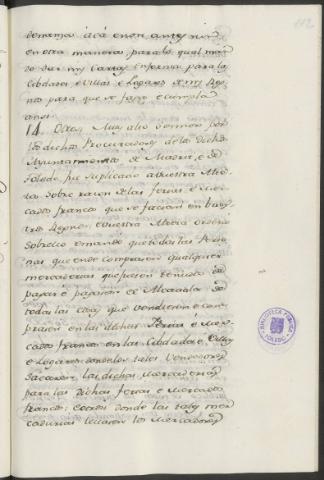 112
tomamos acá e non antes nin
en otra manera; para lo qual man
do dar mis Cartas en forma para las
Cibdades e Villas e Logares de mis Reg
nos para que se faga e cumpla
14. Otrosi Muy alto Sennor por
los dichos Procuradores de los dichos
Ayuntamientos de Madrid, e de
Toledo fue suplicado a Vuestra Alte
za sobre razon de las ferias e mer
cados francos que se facian en bues
tros Regnos, e Vuestra Alteza ordenó
sobrello e mandó que todas las Perso
nas que ende comprasen qualesquier
mercaderias que fuesen tenudos de
pagar e pagasen el Alcavala de
todas las cosas que vendieren e com
prasen en las dichas Ferias e mer
cados francos en las Cibdades e Villas
e Logares donde los tales Vendedores
sacaren las dichas mercadorias
para las dichas ferias e mercados
francos; e otrosi donde las tales mer
cadurias levaren los Mercadores
BIBLIOTECA PUBLICA
TOLEDO